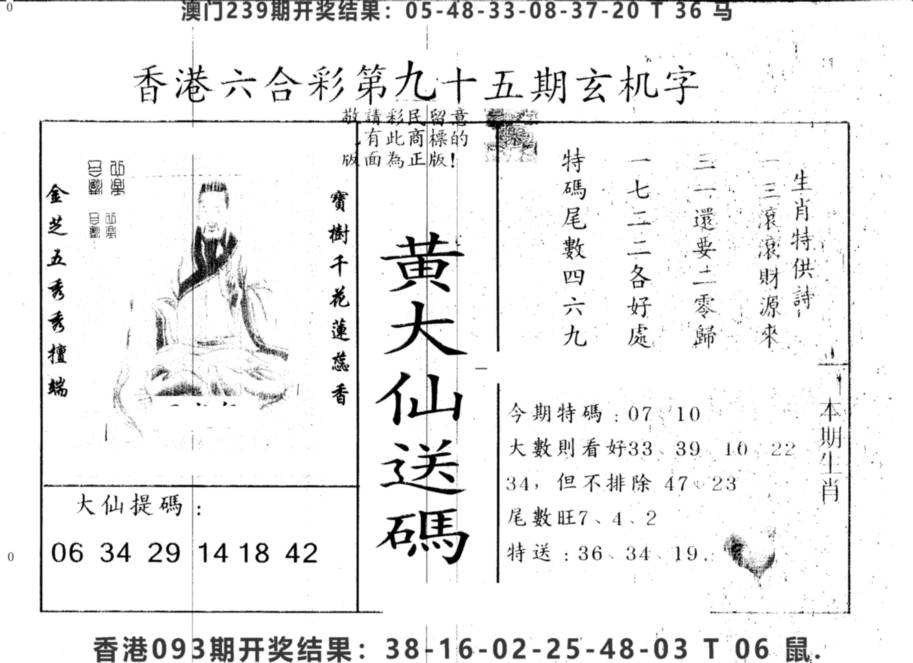 澳门239期开奖结果：05-48-33-08-37-20 T 36 马
香港六合彩第九十五期玄机字
敬請彩民留意
有此商標的
版面為正版!
金芝五秀秀擅端
寶樹千花蓮蕊香
黄大仙送碼
生肖特供詩
一三滾滾財源來
三一還要二零歸
一七二二各好處
特碼尾數四六九
本期生肖
今期特碼：07、10
大數則看好33、39、10、22
34，但不排除 47、23
尾數旺7、4、2
特送：36、34、19.
大仙提碼：
06 34 29 14 18 42
香港093期开奖结果：38-16-02-25-48-03 T 06 鼠.